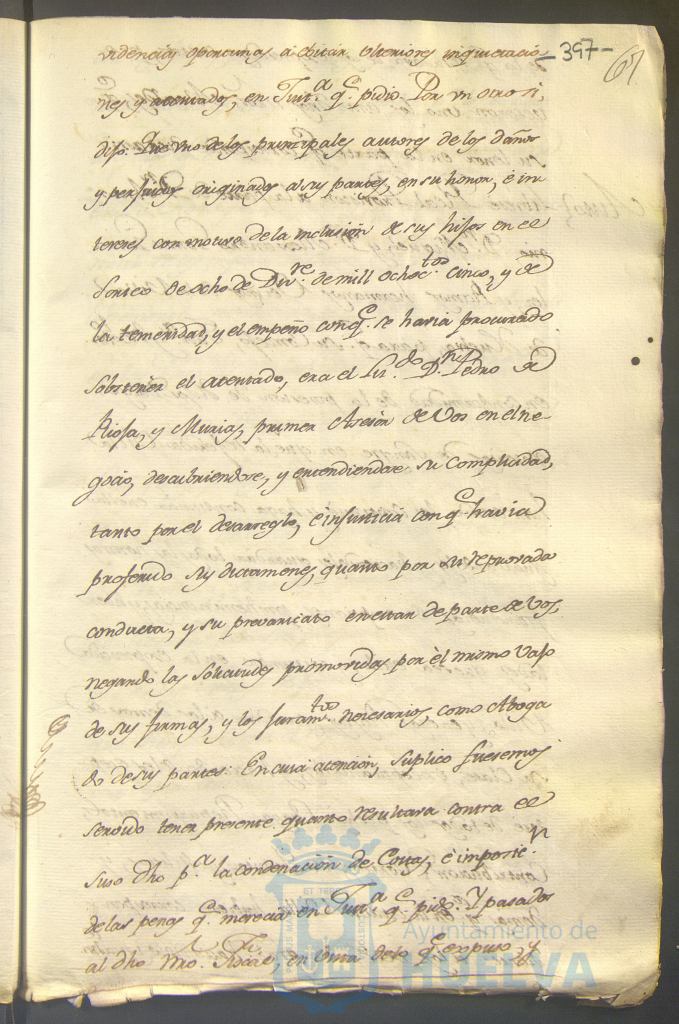 videncias oportunas a evitar ulteriores inquietacio -397- 69
nes y atentados, en Just.ª q.e pidio Por vn otro si,
dijo: Que vno de los principales autores de los daños
y perjuicios originados a sus partes, en su honor, é in
tereses con motivo de la inclusion de sus hijos en el
Sorteo de ocho de Diz.re de mill ochoc.tos cinco, y de
la temeridad, y el empeño con q.e se havia procurado
sobstener el atentado, era el Liz.do D.n Pedro de
Riofa, y Murias, primer Asesor de Vos en el ne-
gocio, descubriendose, y entendiendose su complicidad,
tanto por el desarreglo, é injusticia con q.e havia
proferido sus dictamenes, quanto por su reprovada
conducta, y su prevaricato en estar de parte de Vos,
negando las solicitudes promovidas por él mismo vajo
de sus firmas, y los juram.tos necesarios, como Aboga
do de sus partes: En cuia atencion, suplico fuesemos
servido tener presente quanto resultara contra el
suso dho p.ª la condenacion de Costas, é importe
de las penas q.e merecia, en Just.ª q.e pidio. Y pasados
al dho Nro. Fiscal, en vista de lo q.e expuso, y
Ayuntamiento de
HUELVA